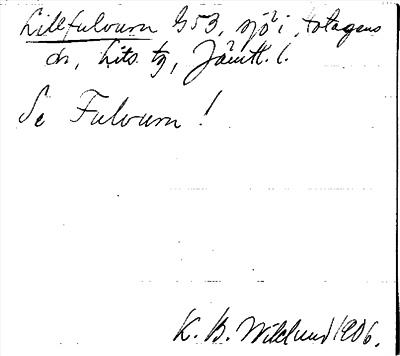 Lillfulvurn G53, sjö i, totagens
dr, Lits tg, Jämtl. l.
Se Fulvurn!
K. B. Wiklund 1906.